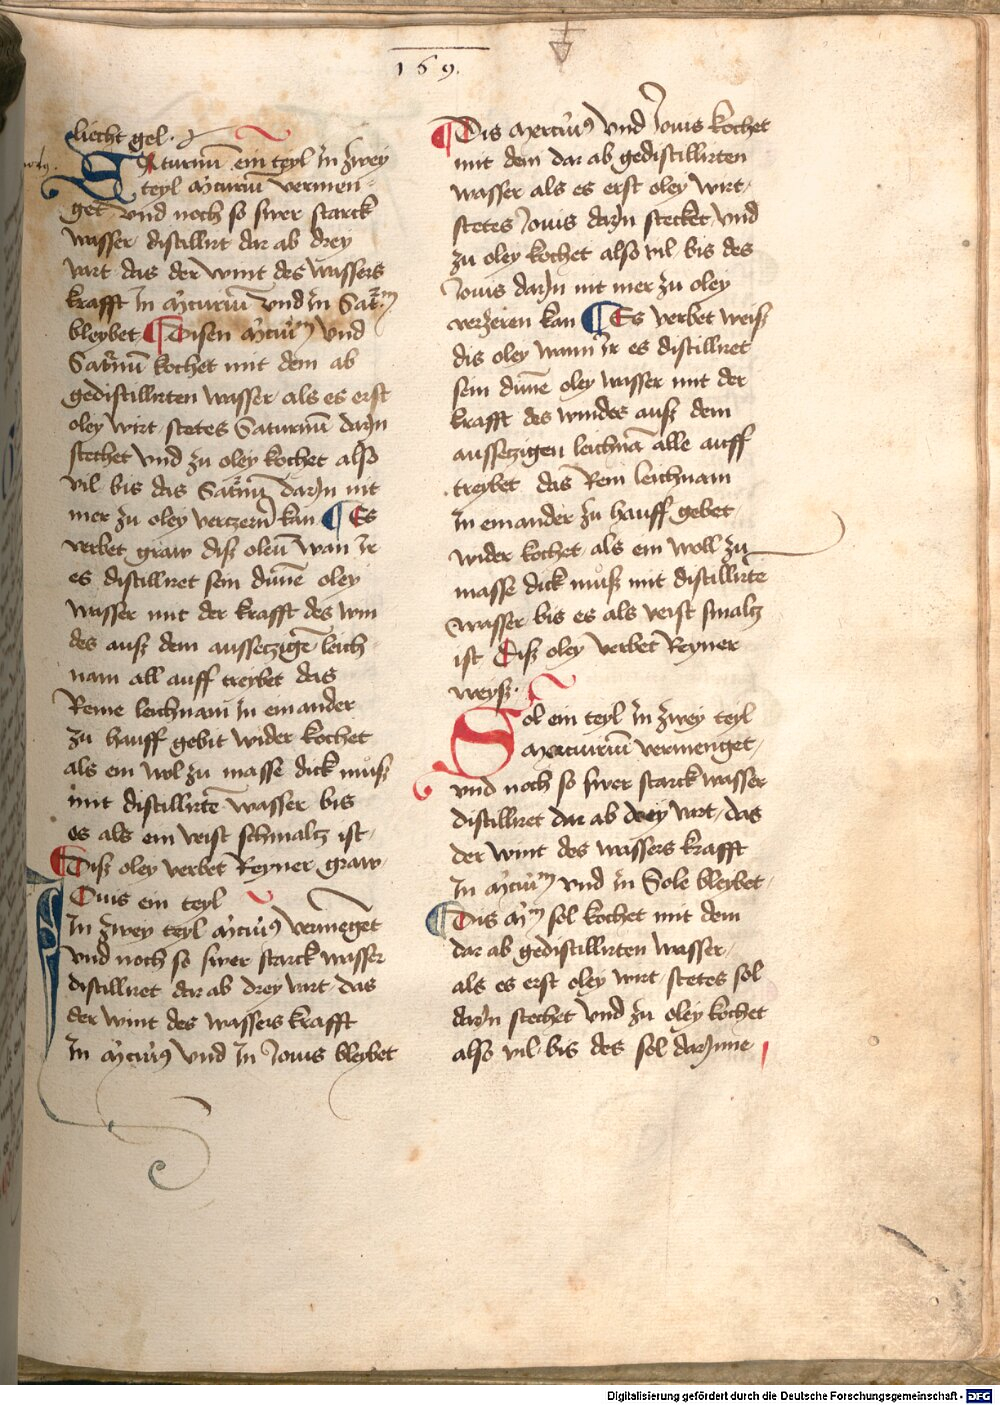 169.
liecht gel.
Saturnū ein teyl in zwey
teyl m̄curiū vermen-
get vnd noch so swer starck
wasser distillirt dar ab drey
vart das der wint des wassers
krafft in m̄curiū vnd in Sat̄rm
bleybet Disen m̄curiū vnd
Sat̄nū kochet mit dem ab
gedistillirten wasser als es erst
oley wirt stetes Saturnū darjn
stechet vnd zu oley kochet also
vil bis das Sat̄nū darjn nit
mer zu oley verczern kan Es
verbet graw diß oleū wan Ir
es distilliret sein dūne oley
wasser mit der krafft des win
des auß dem ausseczigē leich
nam all auff treybet das
Reine leichnam in einander
zu hauff gebit wider kochet
als ein wol zu masse dick muß
mit distillirtē wasser bis
es als ein veist schmaltz ist
Diß oley verbet Reyner graw
Iouis ein teyl
In zwey teyl m̄curi9 vermēget
vnd noch so swer starck wasser
distilliret dar ab drey vart das
der wint des wassers krafft
In m̄curi9 vnd in Iouis bleybet
Dis mercuri9 vnd Iouis kochet
mit dem dar ab gedistillirten
wasser als es erst oley wirt
stetes Iouis darjn stecket vnd
zu oley kochet also vil bis des
Iouis darjn nit mer zu oley
verzeren kan Es verbet weiß
dis oley wann Ir es distilliret
sein dūne oley wasser mit der
krafft des windes auß dem
ausseczigen leichnā alle auff
treybet das Rein leichnam
In einander zu hauff gebet
wider kochet als ein woll zu
masse dick muß mit distillirte
wasser bis es als veist smaltz
ist Diß oley verbet Reyner
weyß.
Sol ein teyl in zwey teyl
mercuriū vermenget
vnd noch so swer starck wasser
distilliret dar ab drey vart das
der wint des wassers krafft
In m̄curiū vnd in Sole bleybet
Dis m̄ sol kochet mit dem
dar ab gedistillirten wasser
als es erst oley wirt stetes sol
darjn stechet vnd zu oley kochet
also vil bis des sol darjnne
Digitalisierung gefördert durch die Deutsche Forschungsgemeinschaft - DFG